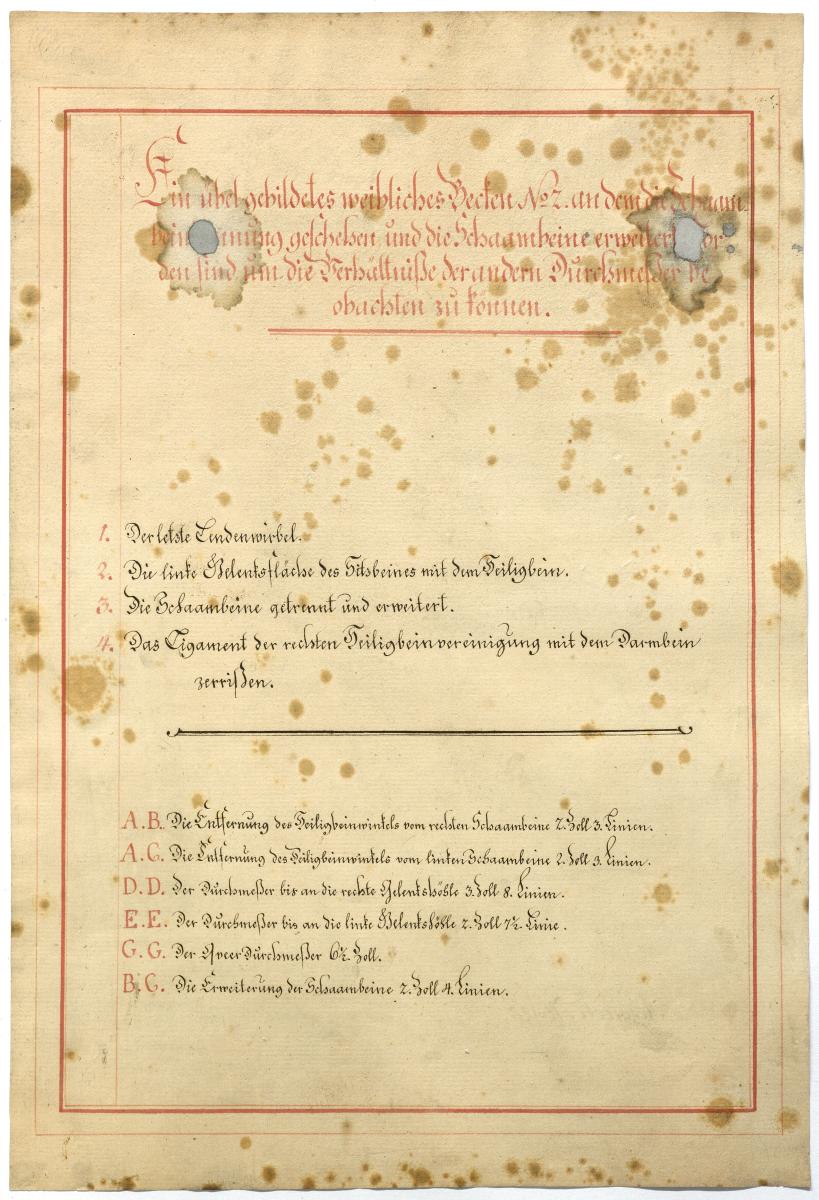 Ein übel gebildetes weibliches Becken No 2. an dem die Schaam-
bein nung geschehen und die Schaambeine erweitert wor-
den sind um die Verhältniße der andern Durchmeßer be
obachten zu können.
1. Der letste Lendenwirbel.
2. Die linke Gelenksfläche des Sitsbeines mit dem Heiligbein.
3. Die Schaambeine getrennt und erweitert.
4. Das Ligament der rechten Heiligbeinvereinigung mit dem Darmbein
zerrißen.
A. B. Die Entfernung des Heiligbeinwinkels vom rechten Schaambeine 2. Zoll 3. Linien.
A. C. Die Entfernung des Heiligbeinwinkels vom linken Schaambeine 2. Zoll 9. Linien.
D. D. Der Durchmeßer bis an die rechte Gelenkshöhle 3. Zoll 8. Linien.
E. E. Der Durchmeßer bis an die linke Gelenkshöhle 2. Zoll 7½ Linie.
G. G. Der QveerDurchmeßer 6½ Zoll.
B. C. Die Erweiterung der Schaambeine 2. Zoll 4. Linien.